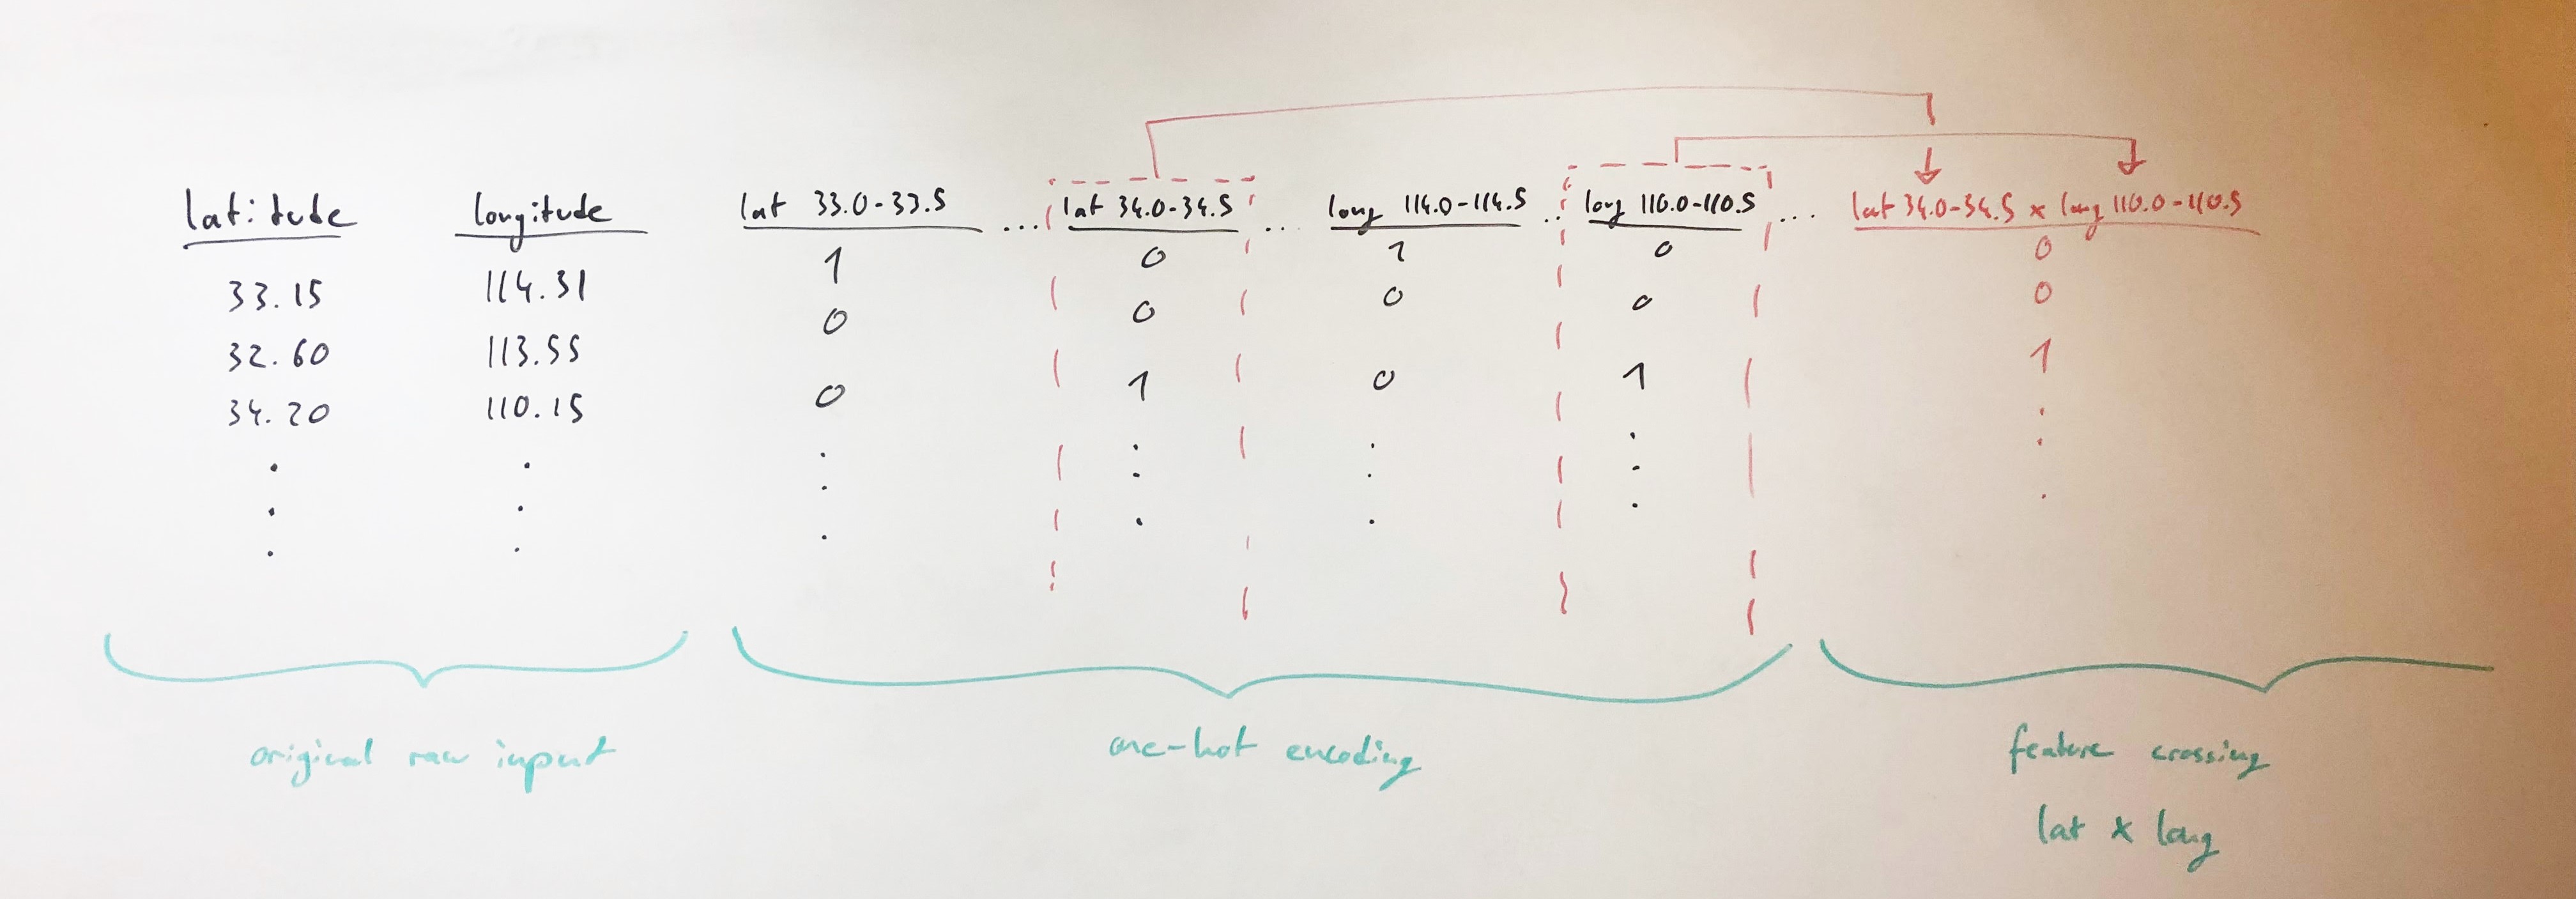 latitude longitude lat 33.0-33.5 ... lat 34.0-34.5 ... long 114.0-114.5 .. long 110.0-110.5 ... lat 34.0-34.5 x long 110.0-110.5
1 0 1 0 0
33.15 114.31
0 0 0 0 0
32.60 113.55
0 1 0 1 1
34.20 110.15
original raw input one-hot encoding feature crossing
lat x long